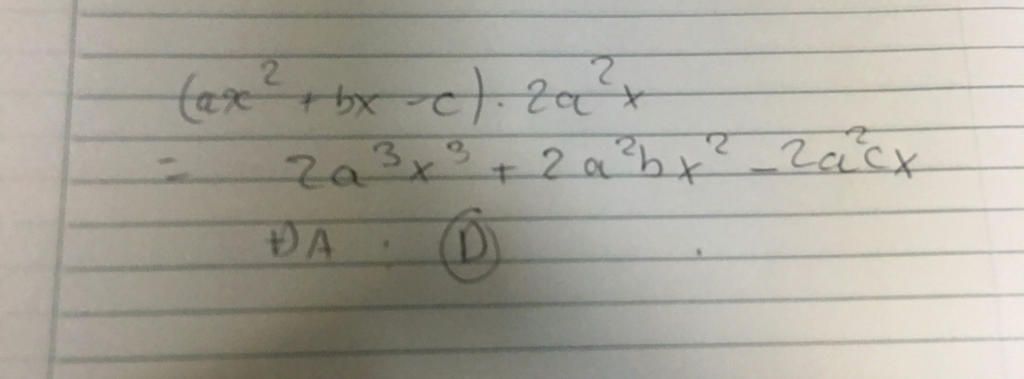 (ax² + bx - c) . 2a²x
= 2a³x³ + 2a²bx² - 2a²cx
ĐA : D